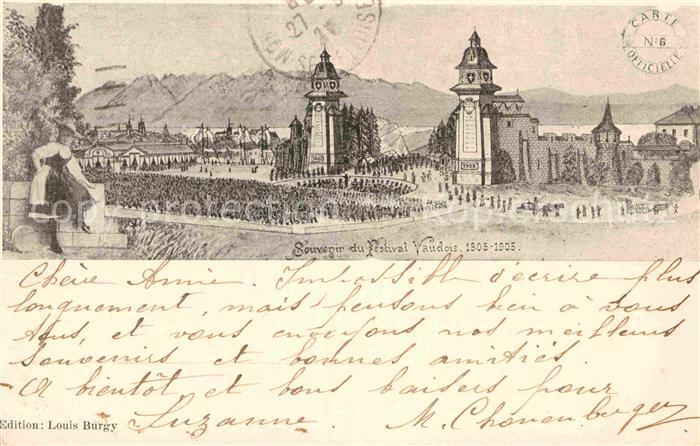 CARTE
No 6
OFFICIELLE
27
Souvenir du Festival Vaudois. 1803-1903.
Chère Annie. Impossible d'écrire plus
longuement, mais pensons bien à vous
tous, et vous envoyons nos meilleurs
souvenirs et bonnes amitiés.
A bientôt et bons baisers pour
Suzanne.
Edition: Louis Burgy